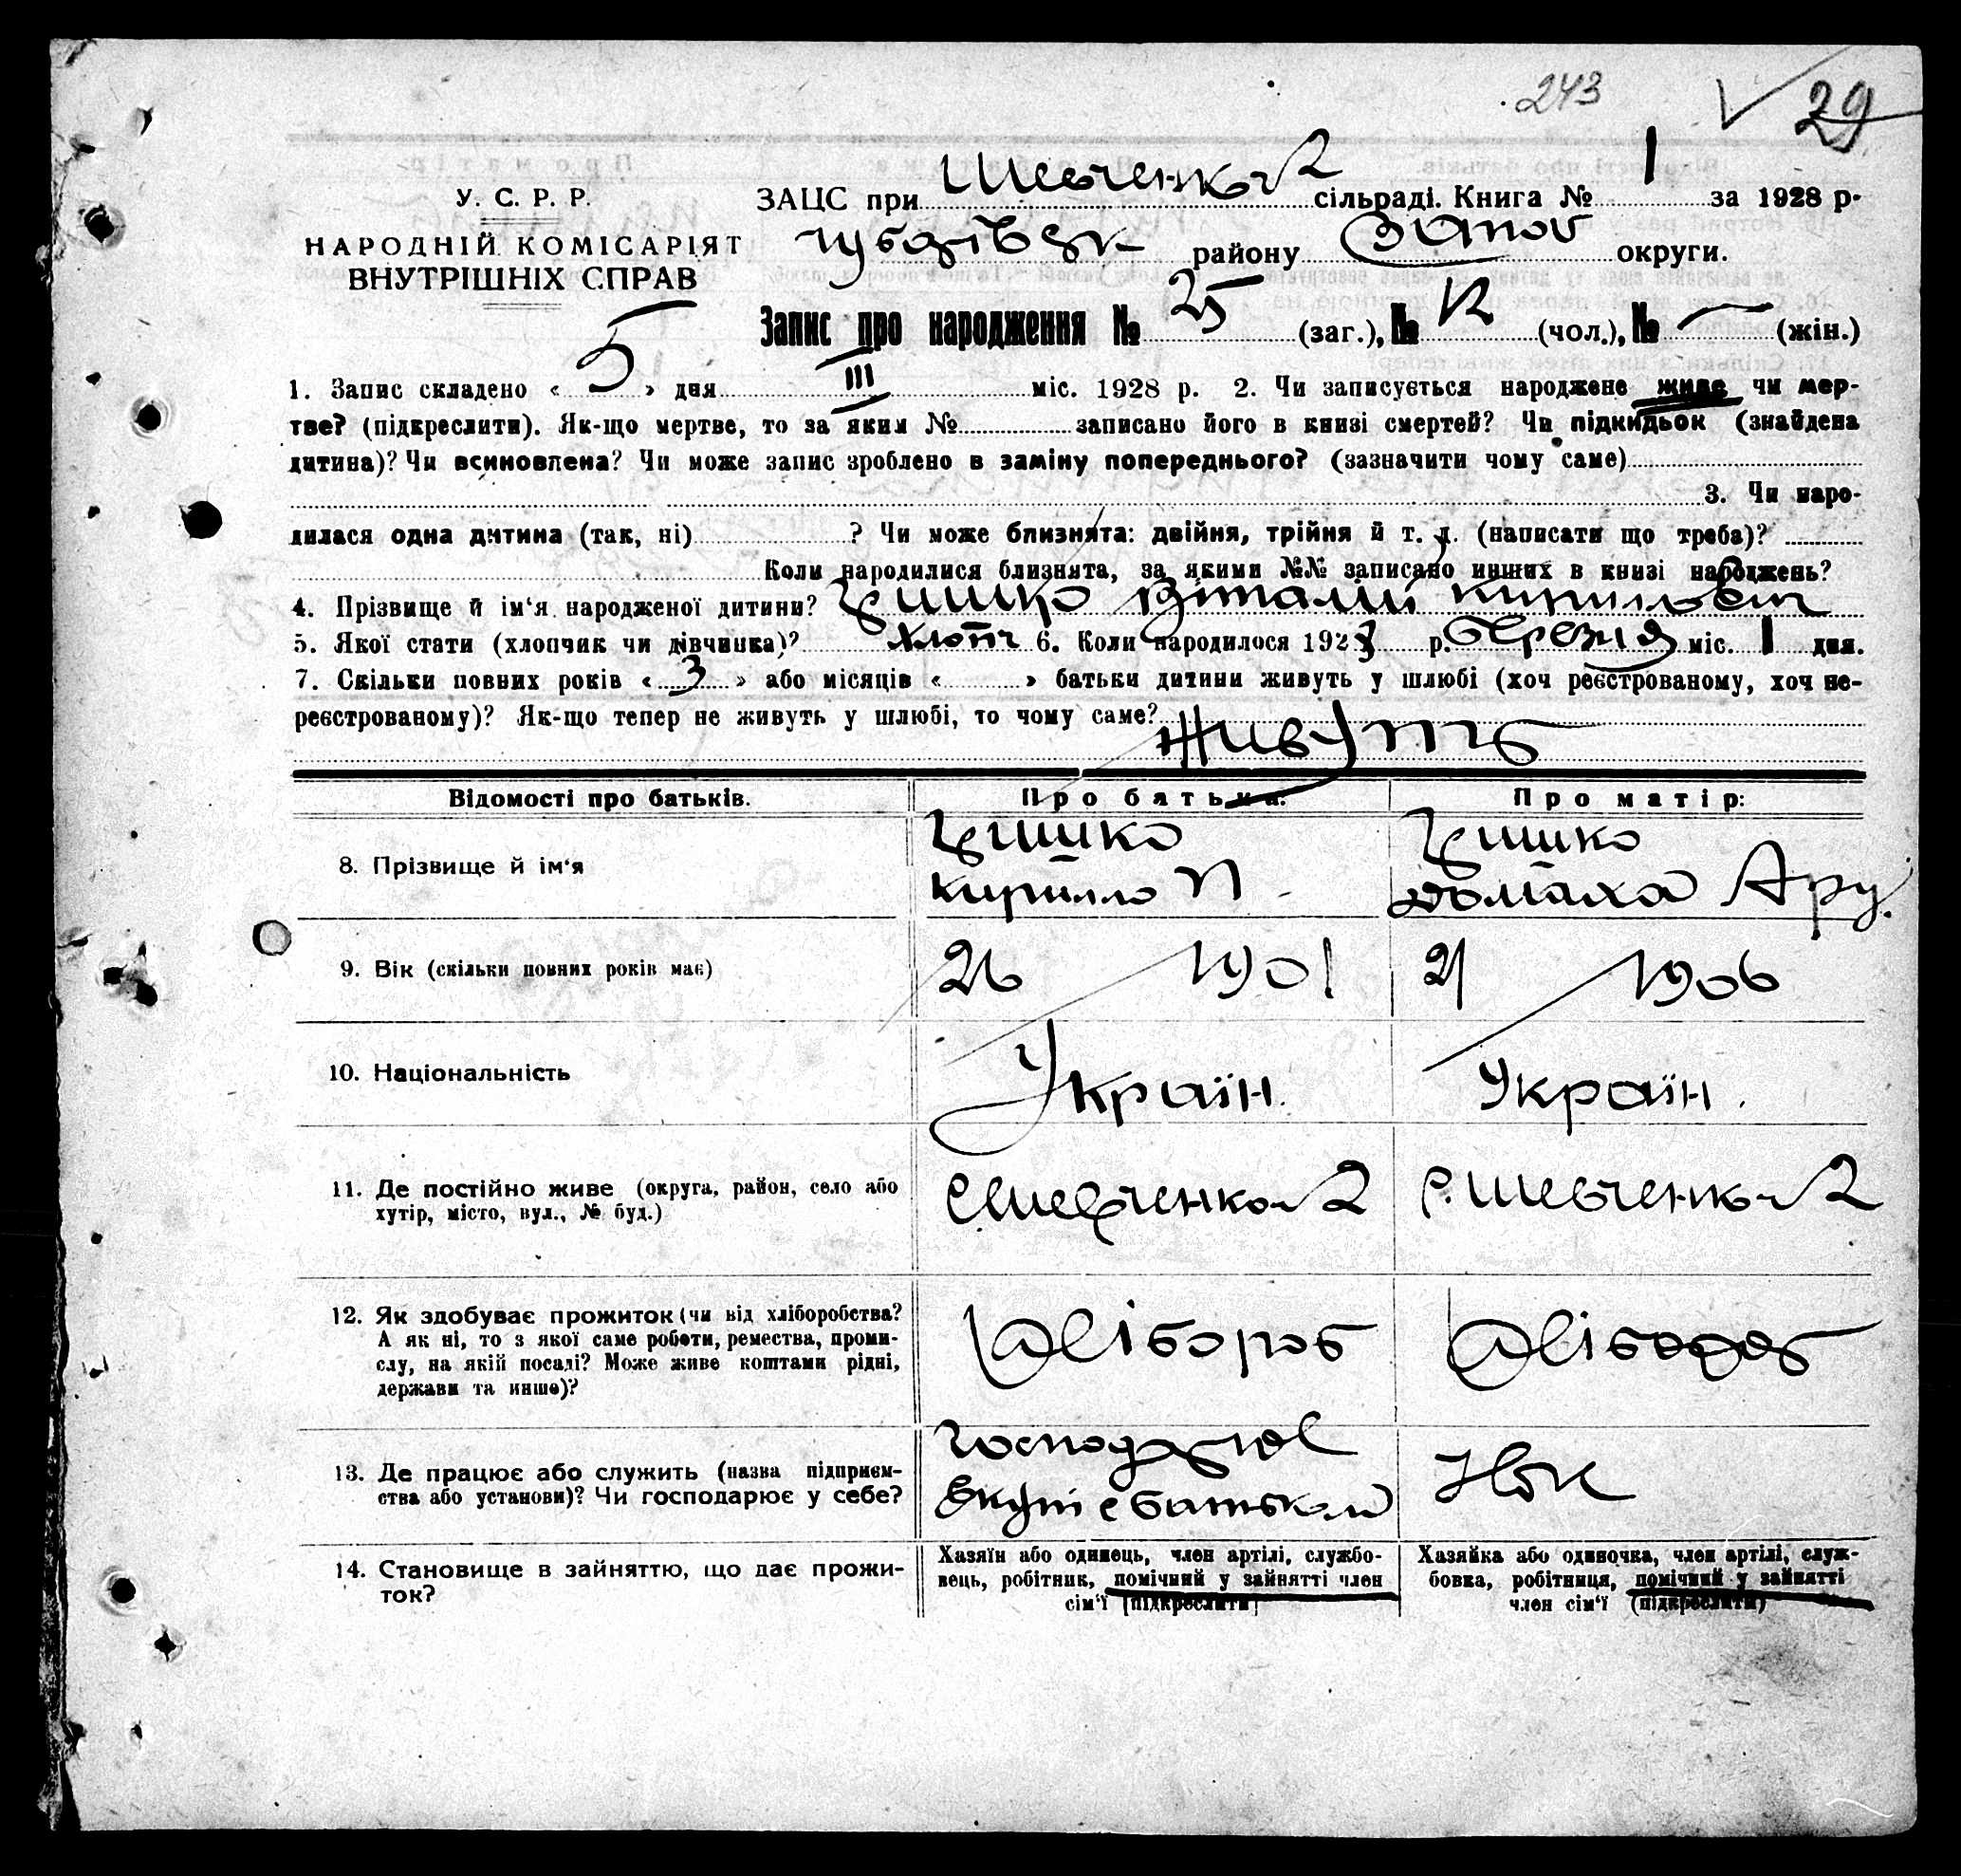 243 29
У. С. Р. Р.
НАРОДНІЙ КОМІСАРІЯТ
ВНУТРІШНІХ СПРАВ
ЗАЦС при Шевченков 2 сільраді. Книга № 1 за 1928 р.
району Запов округи.
Запис про народження № 25 (заг.), № 12 (чол.), № — (жін.)
1. Запис складено « 5 » дня III міс. 1928 р. 2. Чи записується народжене живе чи мер-
тве? (підкреслити). Як-що мертве, то за яким № записано його в книзі смертей? Чи підкидьок (знайдена
дитина)? Чи всиновлена? Чи може запис зроблено в заміну попереднього? (зазначити чому саме)
3. Чи наро-
дилася одна дитина (так, ні) ? Чи може близнята: двійня, трійня й т. д. (написати що треба)?
Коли народилися близнята, за якими №№ записано инших в книзі народжень?
4. Прізвище й ім'я народженої дитини? Гришко Віталій Кирилович
5. Якої стати (хлопчик чи дівчинка)? хлопч 6. Коли народилося 1928 р. березня міс. 1 дня.
7. Скільки повних років « 3 » або місяців « » батьки дитини живуть у шлюбі (хоч реєстрованому, хоч не-
реєстрованому)? Як-що тепер не живуть у шлюбі, то чому саме?
Живуть
Відомості про батьків. Про батька: Про матір:
8. Прізвище й ім'я
Гришко Кирилло П
Гришко Домаха Ару.
9. Вік (скільки повних років має) 26 1901 21 1906
10. Національність Україн. Україн.
11. Де постійно живе (округа, район, село або
хутір, місто, вул., № буд.)
с. Шевченков 2 с. Шевченков 2
12. Як здобуває прожиток (чи від хліборобства?
А як ні, то з якої саме роботи, ремества, проми-
слу, на якій посаді? Може живе коштами рідні,
держави та инше)?
Хлібороб Хлібороб
13. Де працює або служить (назва підприєм-
ства або установи)? Чи господарює у себе?
Господарює
вкупі с батьком
14. Становище в зайняттю, що дає прожи-
ток?
Хазяїн або одинець, член артілі, службо-
вець, робітник, помічний у зайнятті член
сім'ї (підкреслити)
Хазяйка або одиночка, член артілі, служ-
бовка, робітниця, помічний у зайнятті
член сім'ї (підкреслити)